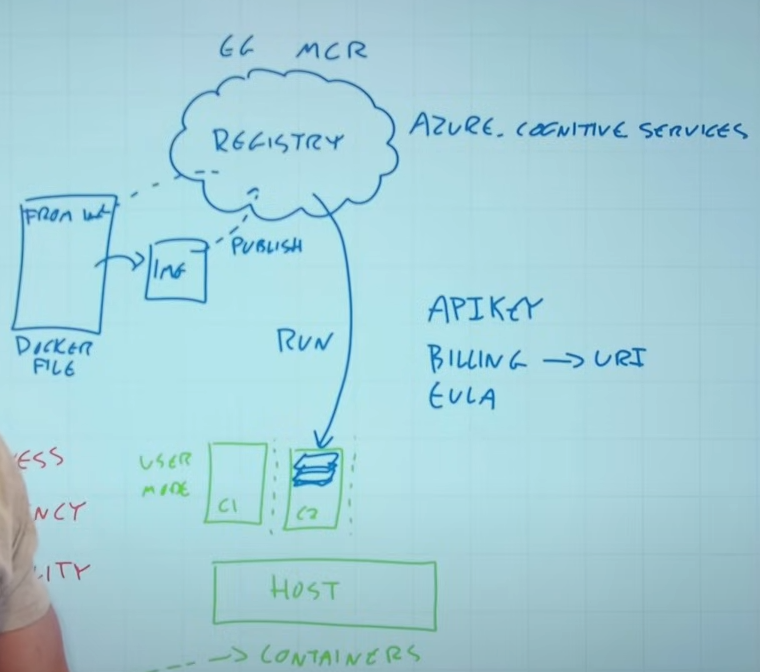 EG MCR
REGISTRY
AZURE. COGNITIVE SERVICES
FROM
IMG
PUBLISH
DOCKER
FILE
RUN
APIKEY
BILLING → URI
EULA
ESS
NCY
LITY
USER
MODE
C1
C2
HOST
CONTAINERS